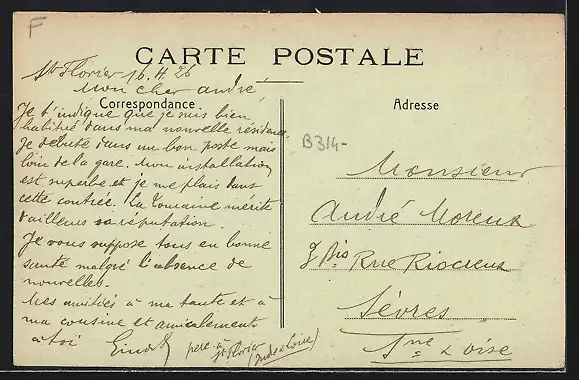 F
CARTE POSTALE
St Florier 16. 4. 26
Mon cher andré
Correspondance
Je t'indique que je suis bien
habitué dans ma nouvelle résidence.
Je débute dans un bon poste mais
loin de la gare. Mon installation
est superbe et je me plais dans
cette contrée. La Touraine mérite
d'ailleurs sa réputation.
Je vous suppose tous en bonne
santé malgré l'absence de
nouvelles.
Mes amitiés à ma tante et à
ma cousine et amicalement
à toi
à
St Florier
(Indre & Loire)
B314-
Adresse
Monsieur
André Moreux
7 Bis Rue Riocreux
Sèvres
Sne & Oise